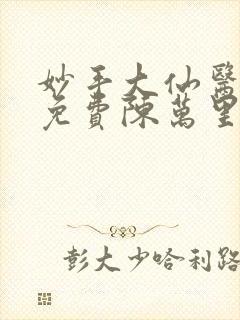 妙手大仙醫
免費陳萬里
彭大少哈利路